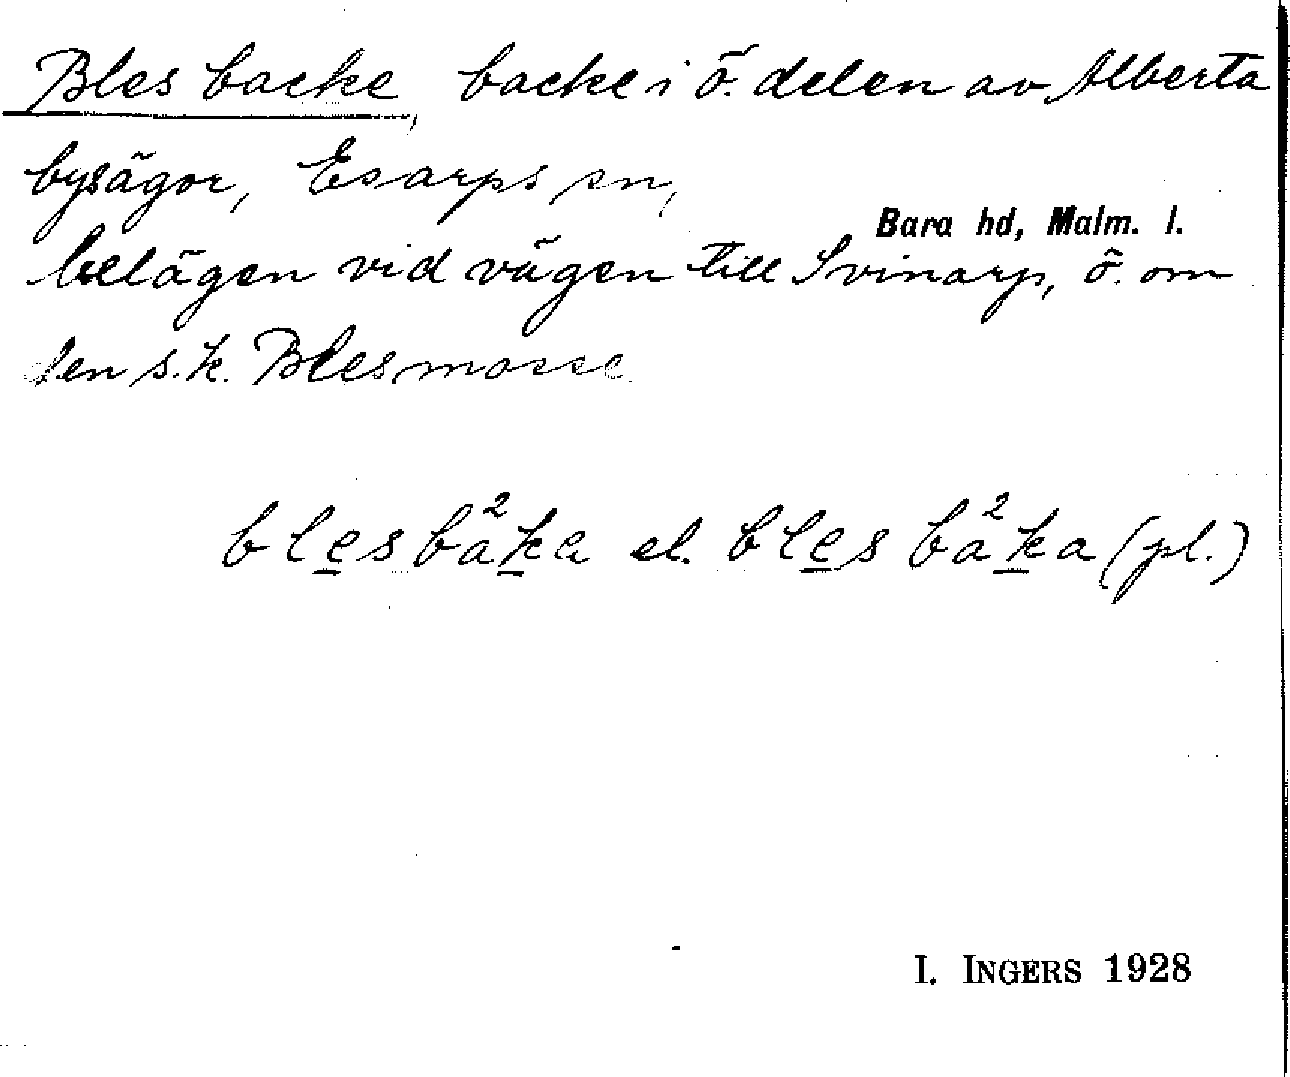 Bles backe, backe i ö. delen av Alberta
bysägor, Esarps sn,
Bara hd, Malm. l.
belägen vid vägen till Svinarp, ö. om
den s.k. Blesmosse
bles bå²ka el. bles bå²ka (pl.)
I. INGERS 1928